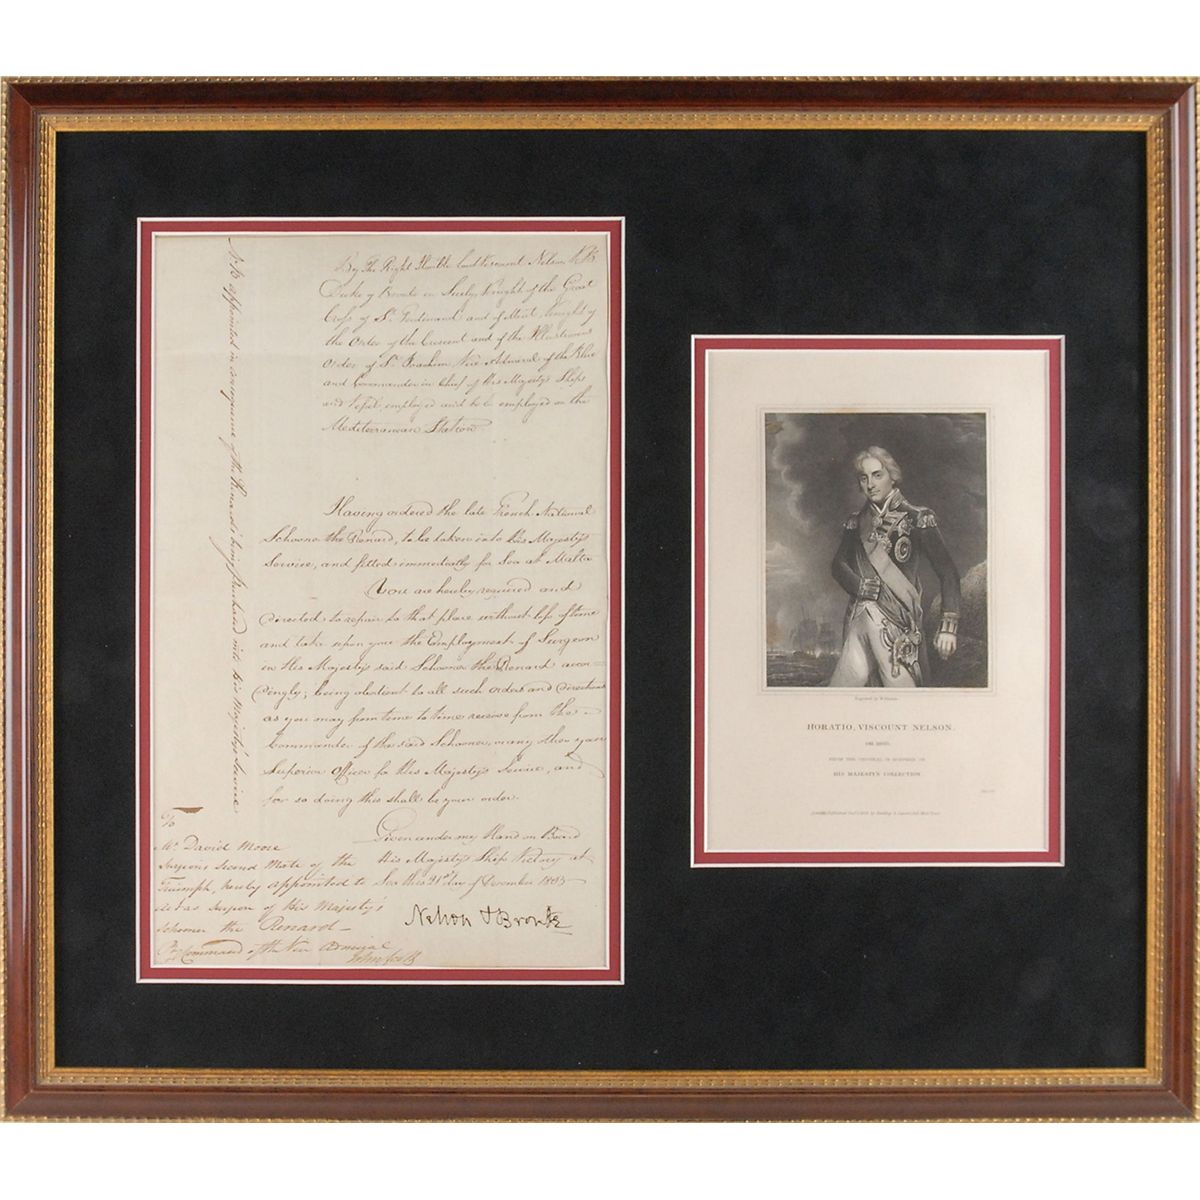 By The Right Honble Lord Viscount Nelson K.B
Duke of Bronte in Sicily, Knight of the Great
Cross of St. Ferdinand and of Merit, Knight of
the Order of the Crescent and of the Illustrious
Order of St. Joachim, Vice Admiral of the Blue
and Commander in Chief of His Majestys Ships
and Vessels employed and to be employed on the
Mediterranean Station.
Having ordered the late French National
Schooner the Renard, to be taken into His Majesty's
Service, and fitted immediately for Sea at Malta
You are hereby required and
Directed to repair to that place without loss of time
and take upon you the Employment of Surgeon
in His Majesty's said Schooner the Renard accor=
Dingly; being obedient to all such orders and directions
as you may from time to time receive from the
Commander of the said Schooner, or any other your
Superior Officer for His Majesty's Service, and
for so doing this shall be your order.
Given under my Hand on Board
His Majesty's Ship Victory at
Sea this 21st day of December 1803
Nelson & Bronte
To
Mr. David Moore
Surgeons Second Mate of the
Triumph, hereby appointed to
act as Surgeon of His Majesty's
Schooner the Renard
By Command of the Vice Admiral
John Scott
N:B appointed in consequence of the Renard's being purchased into His Majesty's Service
HORATIO, VISCOUNT NELSON.
OB. 1805.
FROM THE ORIGINAL OF HOPPNER IN
HIS MAJESTY'S COLLECTION.